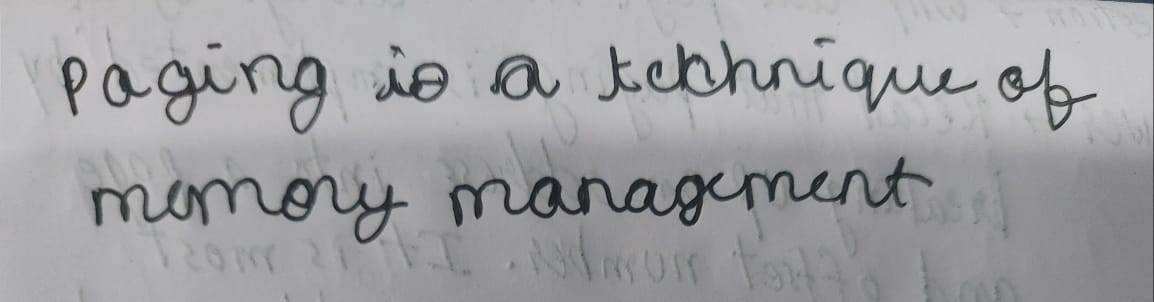 Paging is a technique of
memory management